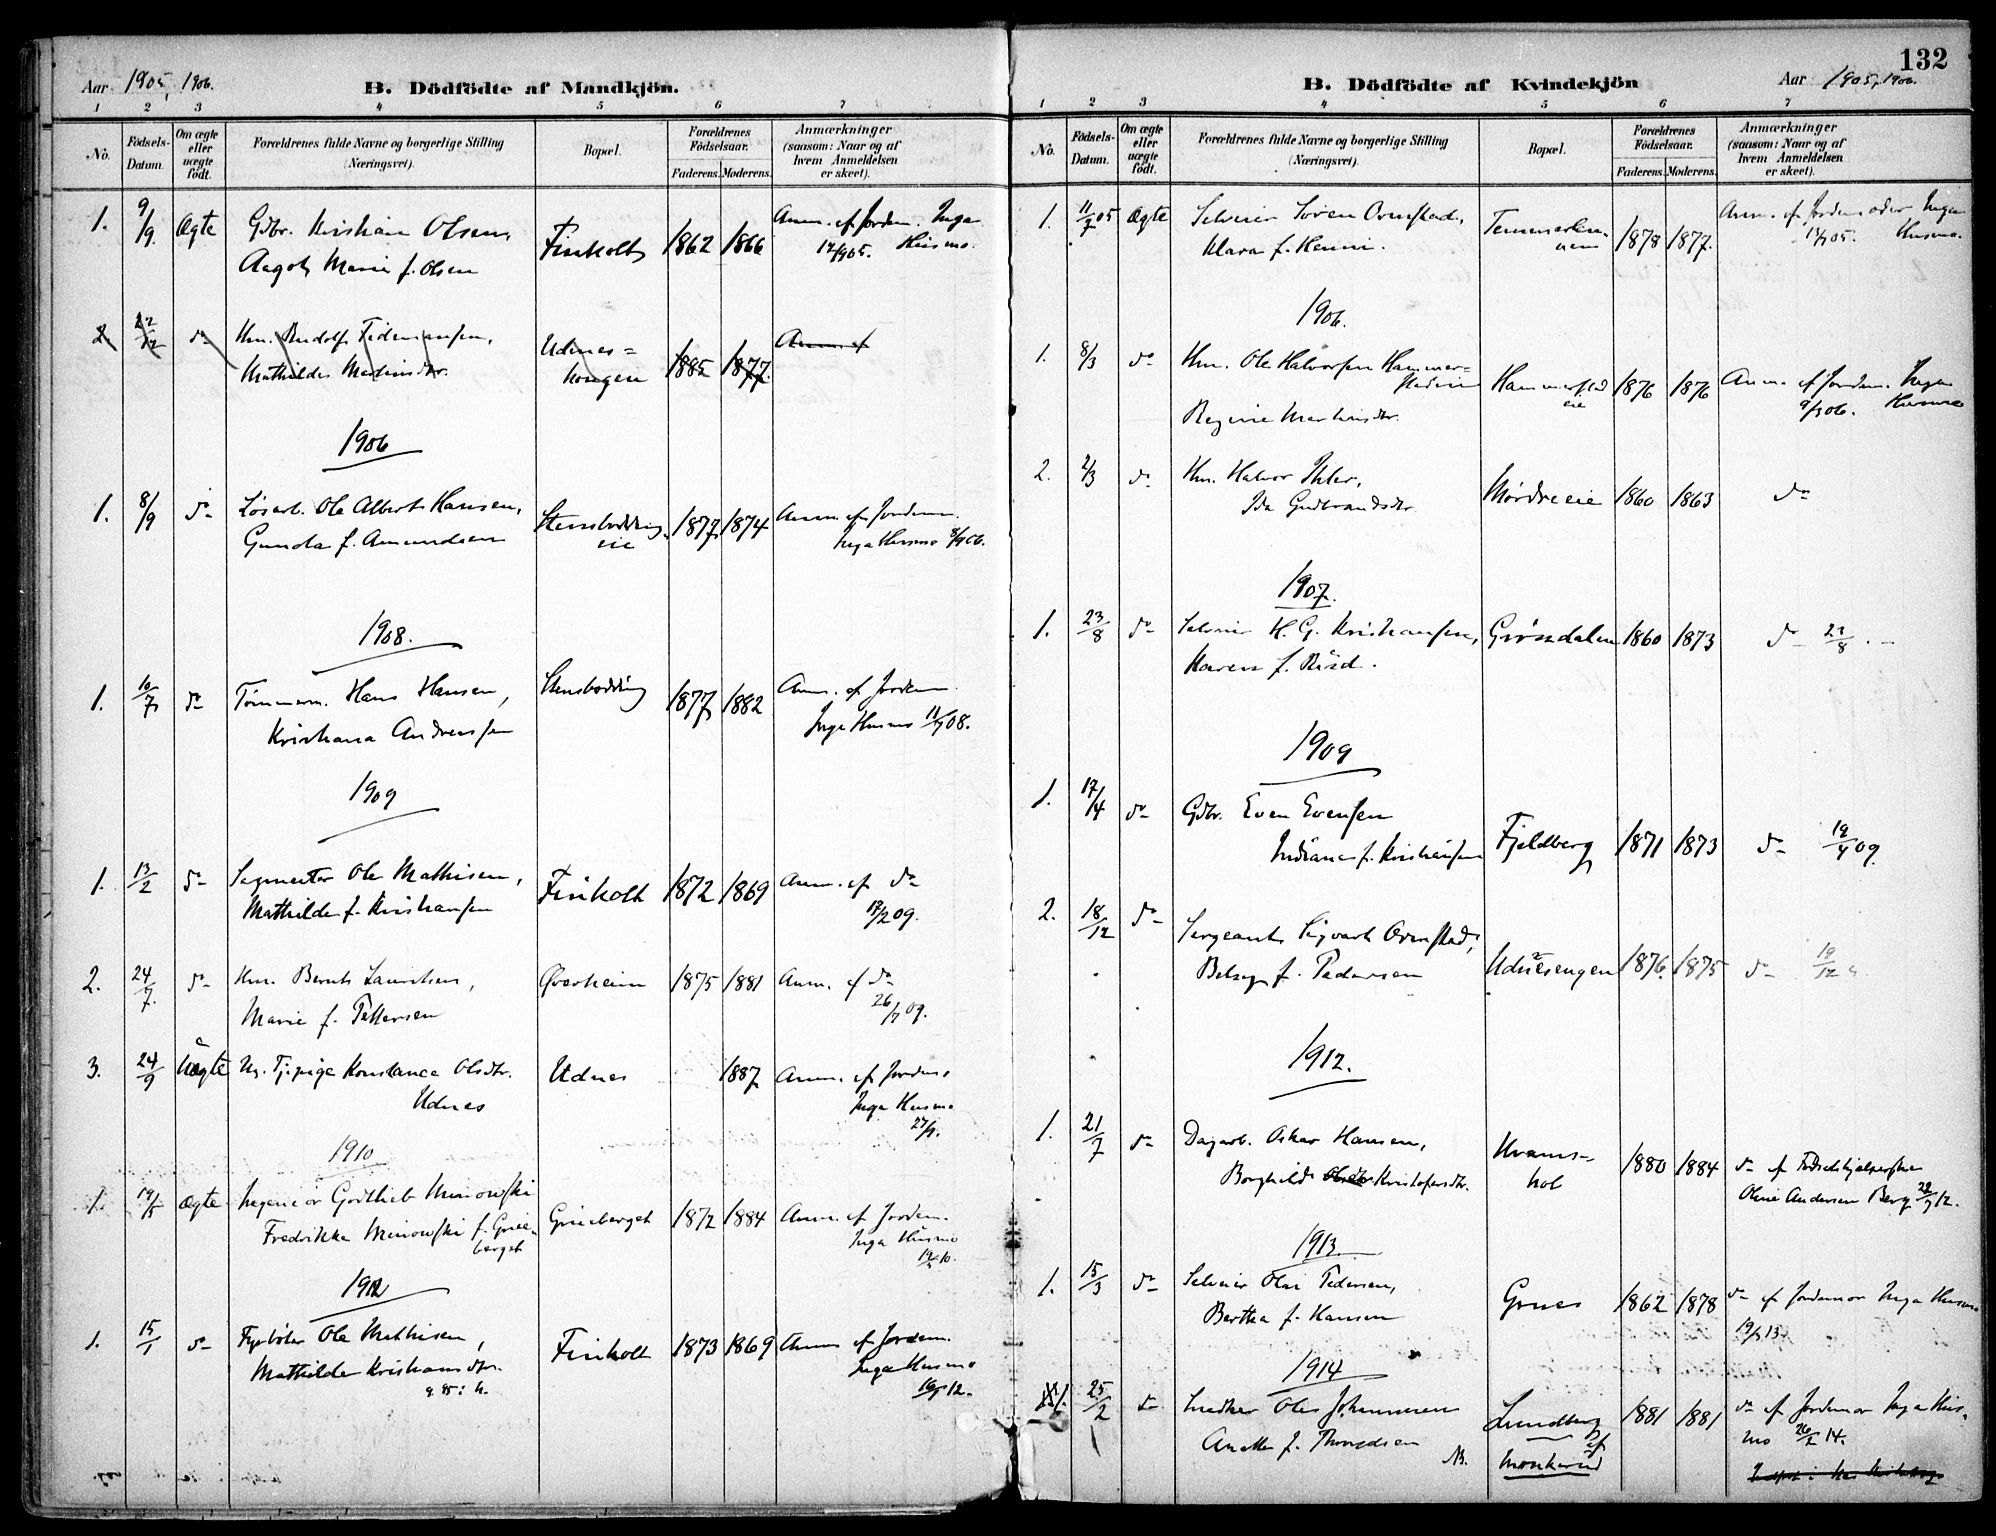 Aar 1905, 1906. B. Dödfödte af Mandkjön.
1 2 3 4 5 6 7
No. Födsels-Datum. Om ægte eller uægte födt. Forældrenes fulde Navne og borgerlige Stilling (Næringsvei). Bopæl. Forældrenes Födselsaar. Faderens. Moderens. Anmærkninger (saasom: Naar og af hvem Anmeldelsen er skeet).
1. 9/9. Ægte Gdbr. Kristian Olsen, Finkolt 1862 1866 Anm. af Jordem. Inga
Aagot Marie f. Olsen 12/9 05. Husmo.
2 22/12 do Hm. Rudolf Tidemansen, Udnes= 1885 1877. Anm. af
Mathilde Martinsdtr. kongen
1906
1. 8/9 do Løsarb. Ole Albert Hansen, Stensbødding 1877 1874 Anm. af Jordem.
Gunda f. Amundsen eie Inga Husmo 8/9 06.
1908.
1. 10/7 do Tømmerm. Hans Hansen, Stensbødding 1877 1882 Anm. af Jordem.
Kristiana Andreassen Inga Husmo 11/7 08.
1909
1. 13/2 do Sagmester Ole Mathisen, Finkolt 1872 1869 Anm. af do
Mathilde f. Kristiansen 17/2 09.
2. 24/7. do Hm. Bernt Lauritsen, Øverheim 1875 1881 Anm. af do
Marie f. Pettersen 26/7 09.
3. 24/9 Uægte Ug. Tj.pige Konstance Olsdtr. Udnes 1887 Anm. af Jordem.
Udnes Inga Husmo
27/9.
1910
1. 19/5 Ægte Ingeniør Gottlieb Minowski Grineberget 1872 1884 Anm. af Jordem.
Fredrikke Minowski f. Grine- Inga Husmo
berget 19/5 10.
1912
1. 15/1 do Fyrbøter Ole Mathisen, Finkolt 1873 1869 Anm af Jordem.
Mathilde Kristiansdtr. Inga Husmo
16/1 12.
132
B. Dödfödte af Kvindekjön Aar 1905, 1906.
1 2 3 4 5 6 7
No. Födsels-Datum. Om ægte eller uægte födt. Forældrenes fulde Navne og borgerlige Stilling (Næringsvei). Bopæl. Forældrenes Födselsaar. Faderens. Moderens. Anmærkninger (saasom: Naar og af hvem Anmeldelsen er skeet).
1. 11/7 05 Ægte Selveier Søren Ovnstad, 1878 1877. Anm. af Jordemoder Inga
Klara f. Henni. 13/7 05. Husmo.
1906.
1. 8/3 do Hm. Ole Halvorsen Hammer- Hammerstad 1876 1876 Anm. af Jordem. Inga
stadeie eie 9/3 06. Husmo
Regine Martinsdtr.
2. 2/3 do Hm. Halvor Ihler, Mørdreeie 1860 1863 do
Ida Gudbrandsdtr.
1907.
1. 23/8 do Selveier H. G. Kristiansen, Grøndalen 1860 1873 do 23/8
Karen f. Risd.
1909
1. 17/4 do Gdbr. Even Evensen Fjeldberg 1871 1873 do 19/4 09.
Indiane f. Kristiansen
2. 18/12 do Sergeant Sigvart Ovnstad, Udnesengen 1876. 1875 do 19/12
Betzy f. Pedersen
1912.
1. 21/7 do Dagarb. Oskar Hansen, Kvams- 1880 1884 do af Fødselshjælpersken
Borghild Olsdtr Kristofersdtr. hol Oline Andersen Berg 22/7 12.
1913.
1. 15/3 do Selveier Olai Pedersen, Grues 1862 1878 do af Jordemor Inga Husmo
Bertha f. Hansen 19/3 13.
1914
1. 25/2 do Snedker Ole Johannesen Lundberg 1881 1881 do af Jordemor Inga Hus-
Anette f. Thorsdsen af mo 26/2 14.
NB. Monkerud